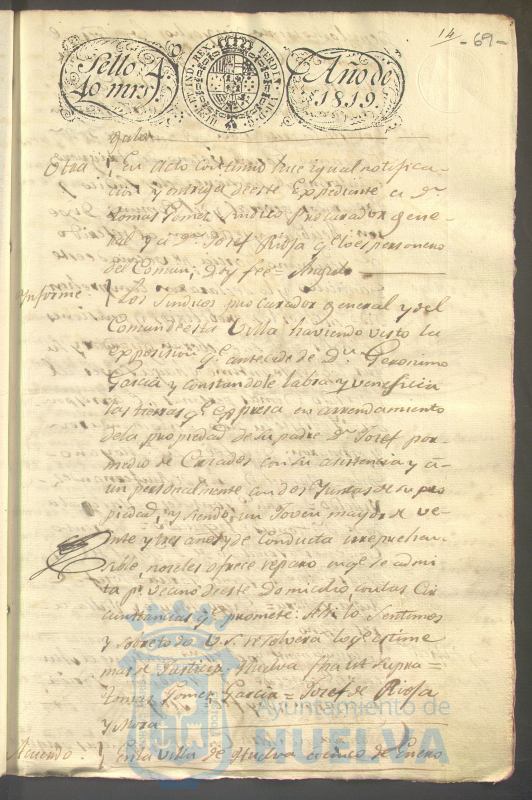 14
-69-
Sello 4.
40 mrs.
Año de
1819.
Otra
En acto continuo hice igual notifica-
cion y entrega de este Expediente a Dn
Tomas Gomez Sindico Procurador gene-
ral y a Dn Josef Rioja qe lo es personero
del Comun, doy fee=
Ynforme
Los Sindicos procurador general y del
Comun de esta Villa haviendo visto la
exposicion qe antecede de Dn Geronimo
Garcia y constandole labra y veneficia
las tierras qe expresa en arrendamiento
de la propiedad de su padre Dn Josef por
medio de Criados con su asistencia y a-
un personalmente con dos Juntas de su pro
piedad, y siendo un Joven mayor de ve-
inte y tres anos y de conducta irreprehen-
sible, no seles ofrece reparo en qe se admi
ta pr vecino de este Domicilio con las Cir
cunstancias qe promete: Asi lo sentimos
y sobre todo V.S. resolverá lo qe estime
mas de Justicia Huelva fha ut supra=
Tomas Gomez Garcia = Josef de Rioja
y Mora
Acuerdo.
En la Villa de Huelva a cinco de Enero
Ayuntamiento de
HUELVA